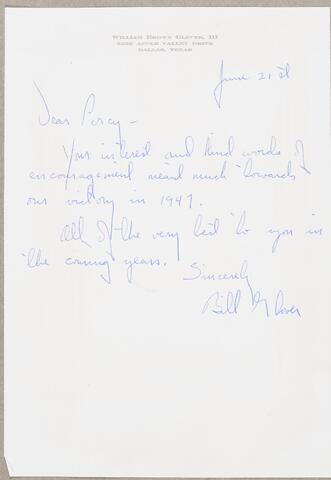 WILLIAM BROWN GLOVER, III
APPLE VALLEY DRIVE
DALLAS, TEXAS
June 21st
Dear Percy –
Your interest and kind words of
encouragement meant much towards
our victory in 1947.
All of the very best to you in
the coming years.
Sincerely
Bill Glover